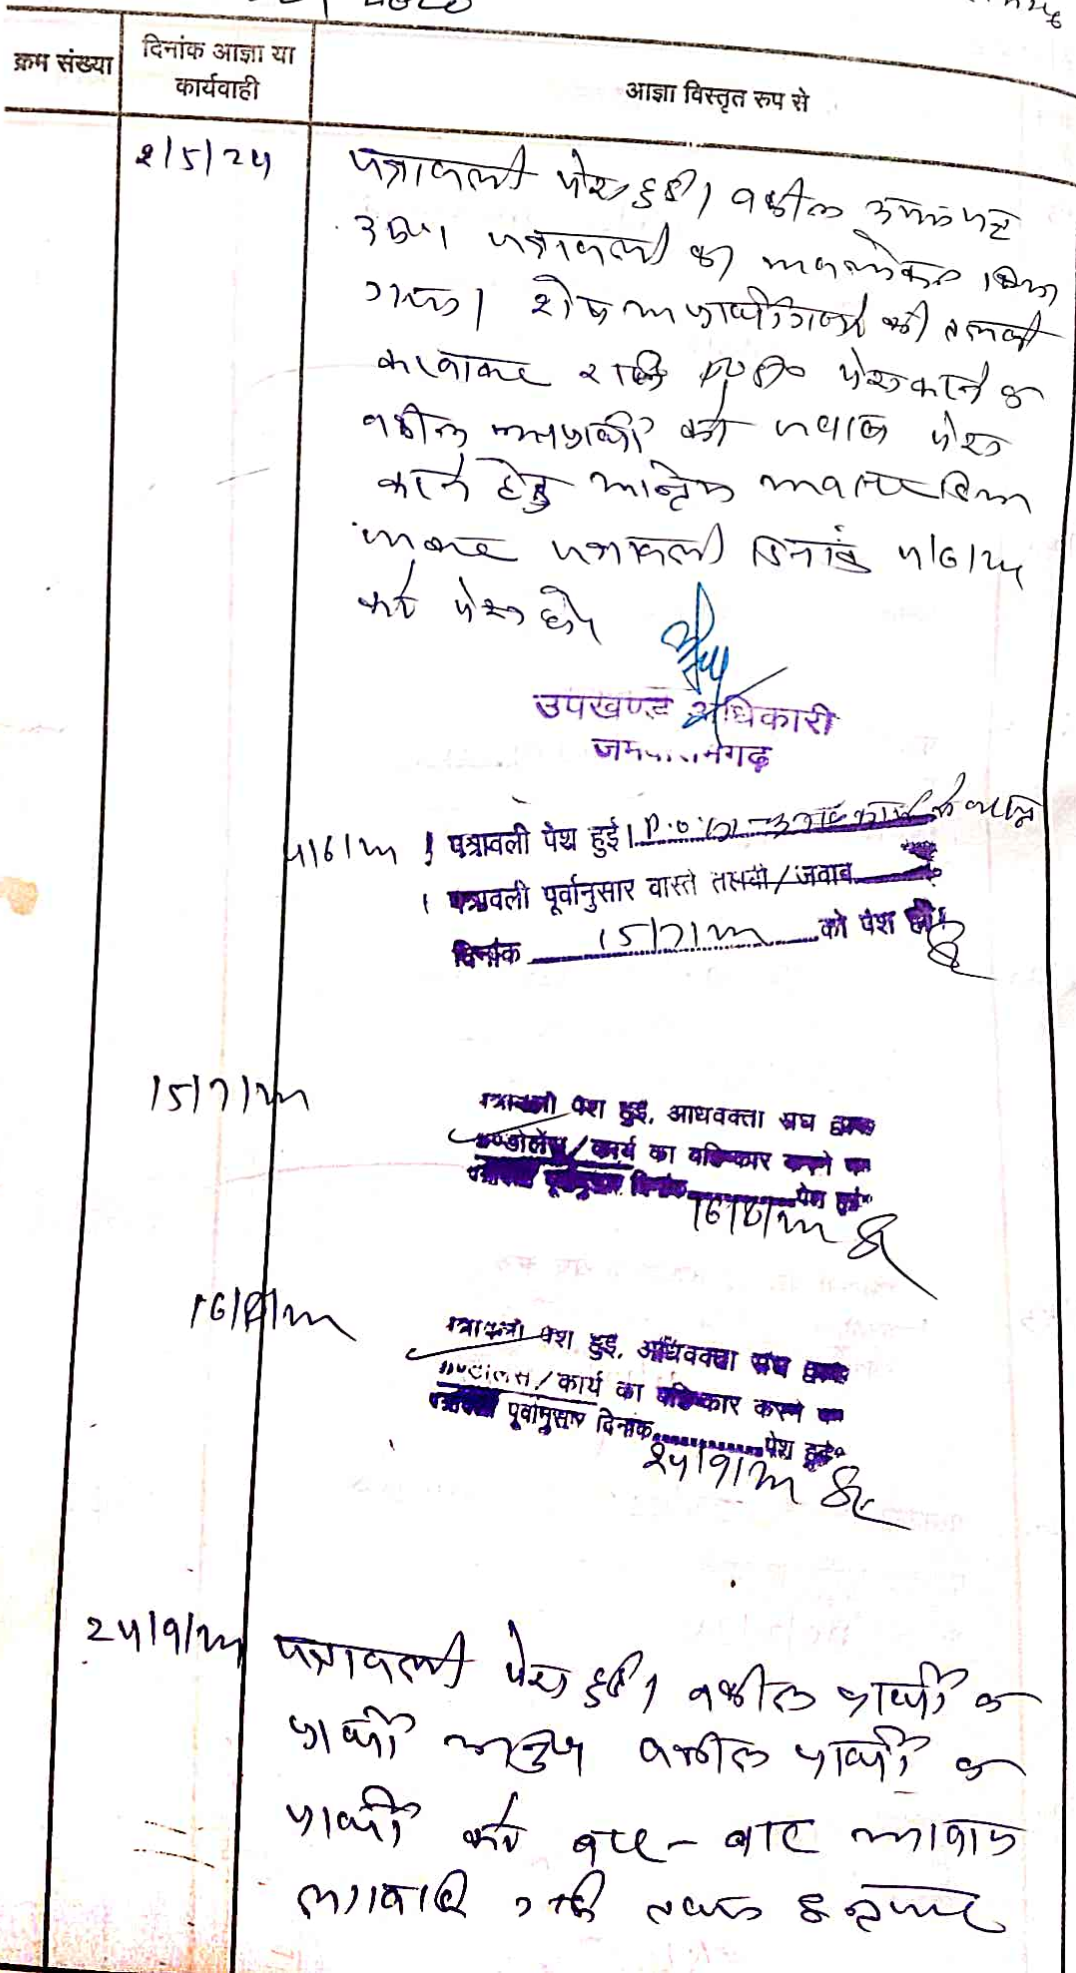 क्रम संख्या
दिनांक आज्ञा या
कार्यवाही
आज्ञा विस्तृत रुप से
2/5/24
पत्रावली पेश हुई। वकील उभय पक्ष
उप०। पत्रावली का अवलोकन किया
गया। शेष अप्रार्थीगणों की तलबी
करवाकर पेश करने व
वकील अप्रार्थी को जवाब पेश
करने हेतु अन्तिम अवसर दिया
जाकर पत्रावली दिनांक 4/6/24
को पेश हो।
उपखण्ड अधिकारी
4/6/24
पत्रावली पेश हुई। P.O.
पत्रावली पूर्वानुसार वास्ते तलबी/जवाब
दिनांक 15/7/24 को पेश हो।
15/7/24
पत्रावली पेश हुई, अधिवक्ता संघ द्वारा
कण्डोलेंस/कार्य का बहिष्कार करने पर
पत्रावली पूर्वानुसार दिनांक 16/8/24 पेश हुई
16/8/24
पत्रावली पेश हुई, अधिवक्ता संघ द्वारा
कण्डोलेंस/कार्य का बहिष्कार करने पर
पत्रावली पूर्वानुसार दिनांक 24/9/24 पेश हुई
24/9/24
पत्रावली पेश हुई। वकील प्रार्थी व
प्रार्थी अनुप० वकील प्रार्थी व
प्रार्थी को बार-बार आवाज
लगवाई गयी